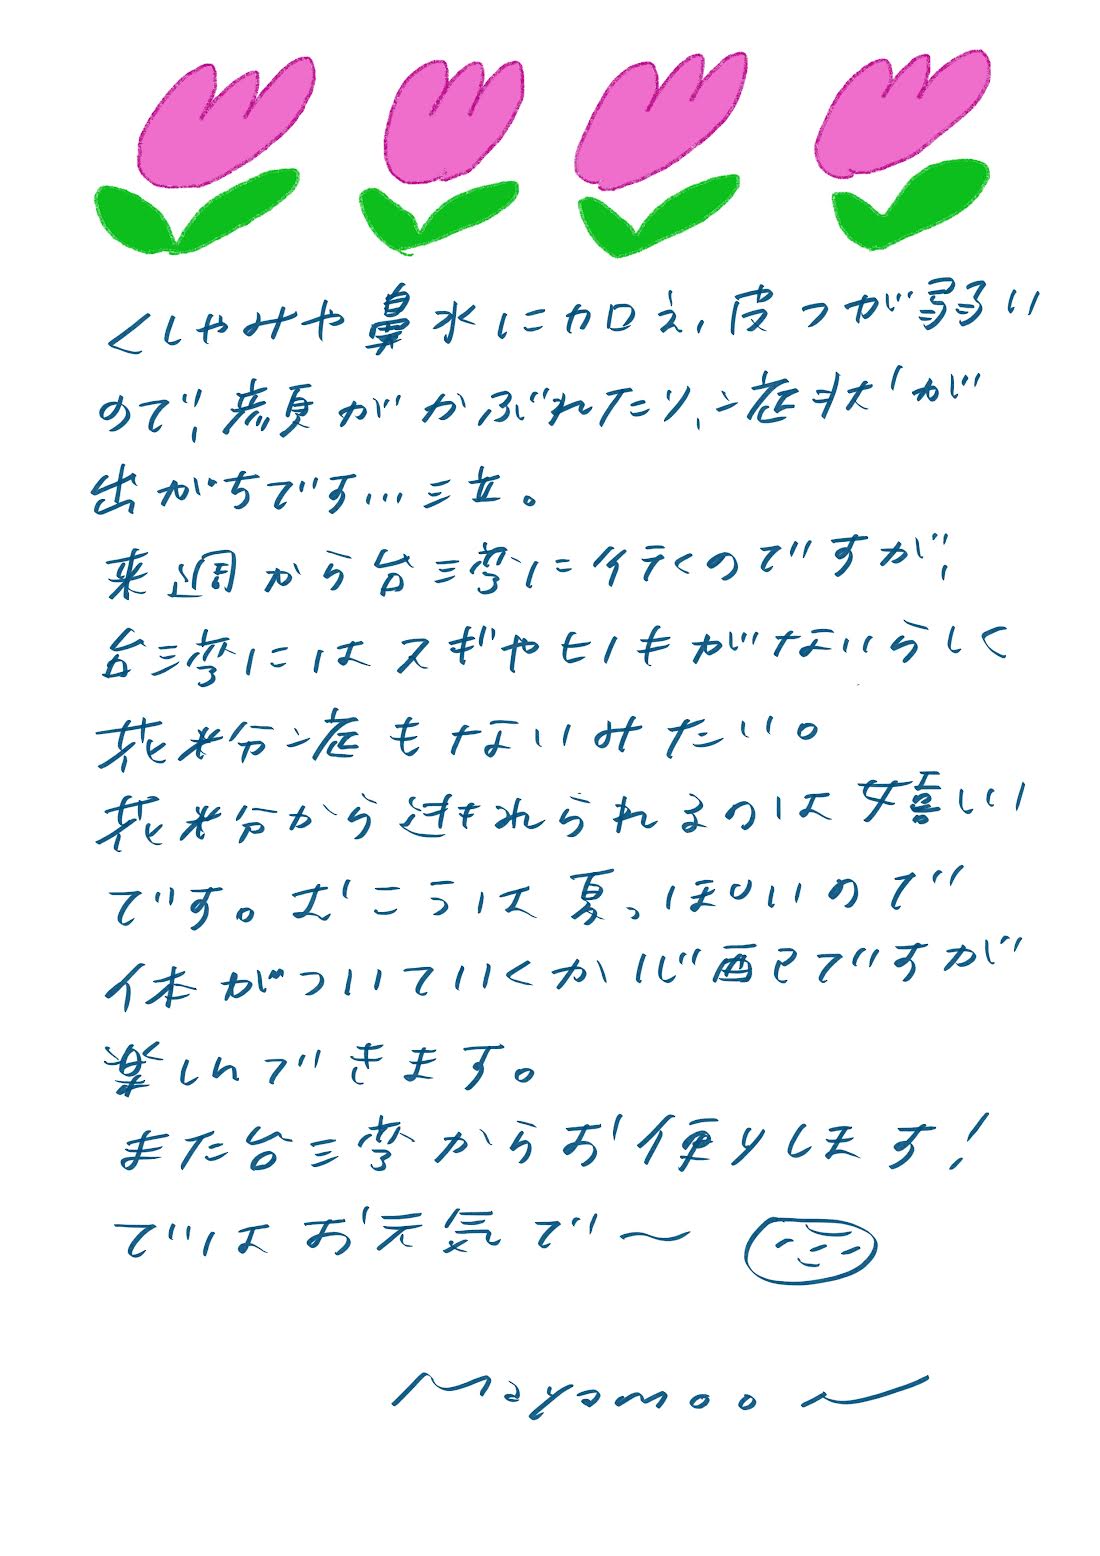 くしゃみや鼻水に加え、皮フが弱い
ので、顔がかぶれたり、症状が
出がちです…泣。
来週から台湾に行くのですが、
台湾にはスギやヒノキがないらしく
花粉症もないみたい。
花粉から逃れられるのは嬉しい
です。むこうは夏っぽいので
体がついていくか心配ですが
楽しんできます。
また台湾からお便りします!
ではお元気で〜
Mayamoon